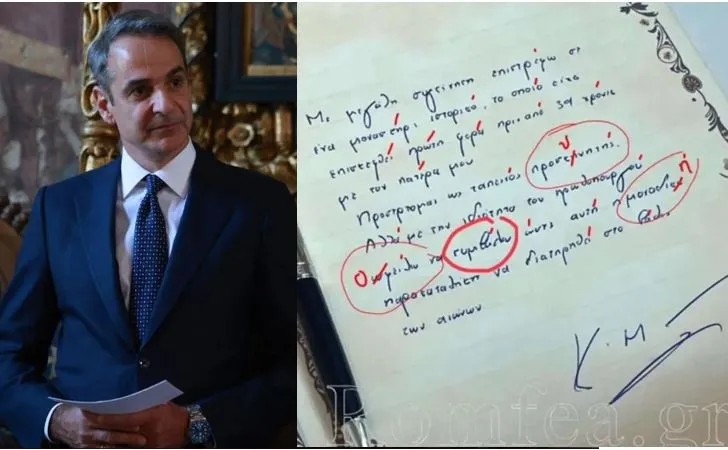 Με μεγάλη συγκίνηση επιστρέφω σε
ένα μοναστήρι ιστορικό, το οποίο είχα
επισκεφθεί πρώτη φορά πριν από χρόνια
με τον πατέρα μου
Προσέρχομαι ως ταπεινός
Αλλά με την ιδιότητα του πρωθυπουργού
να συμβάλω ώστε αυτή η
παρακαταθήκη να διατηρηθεί στο βάθος
των αιώνων
Κ. Μ
Romfea.gr